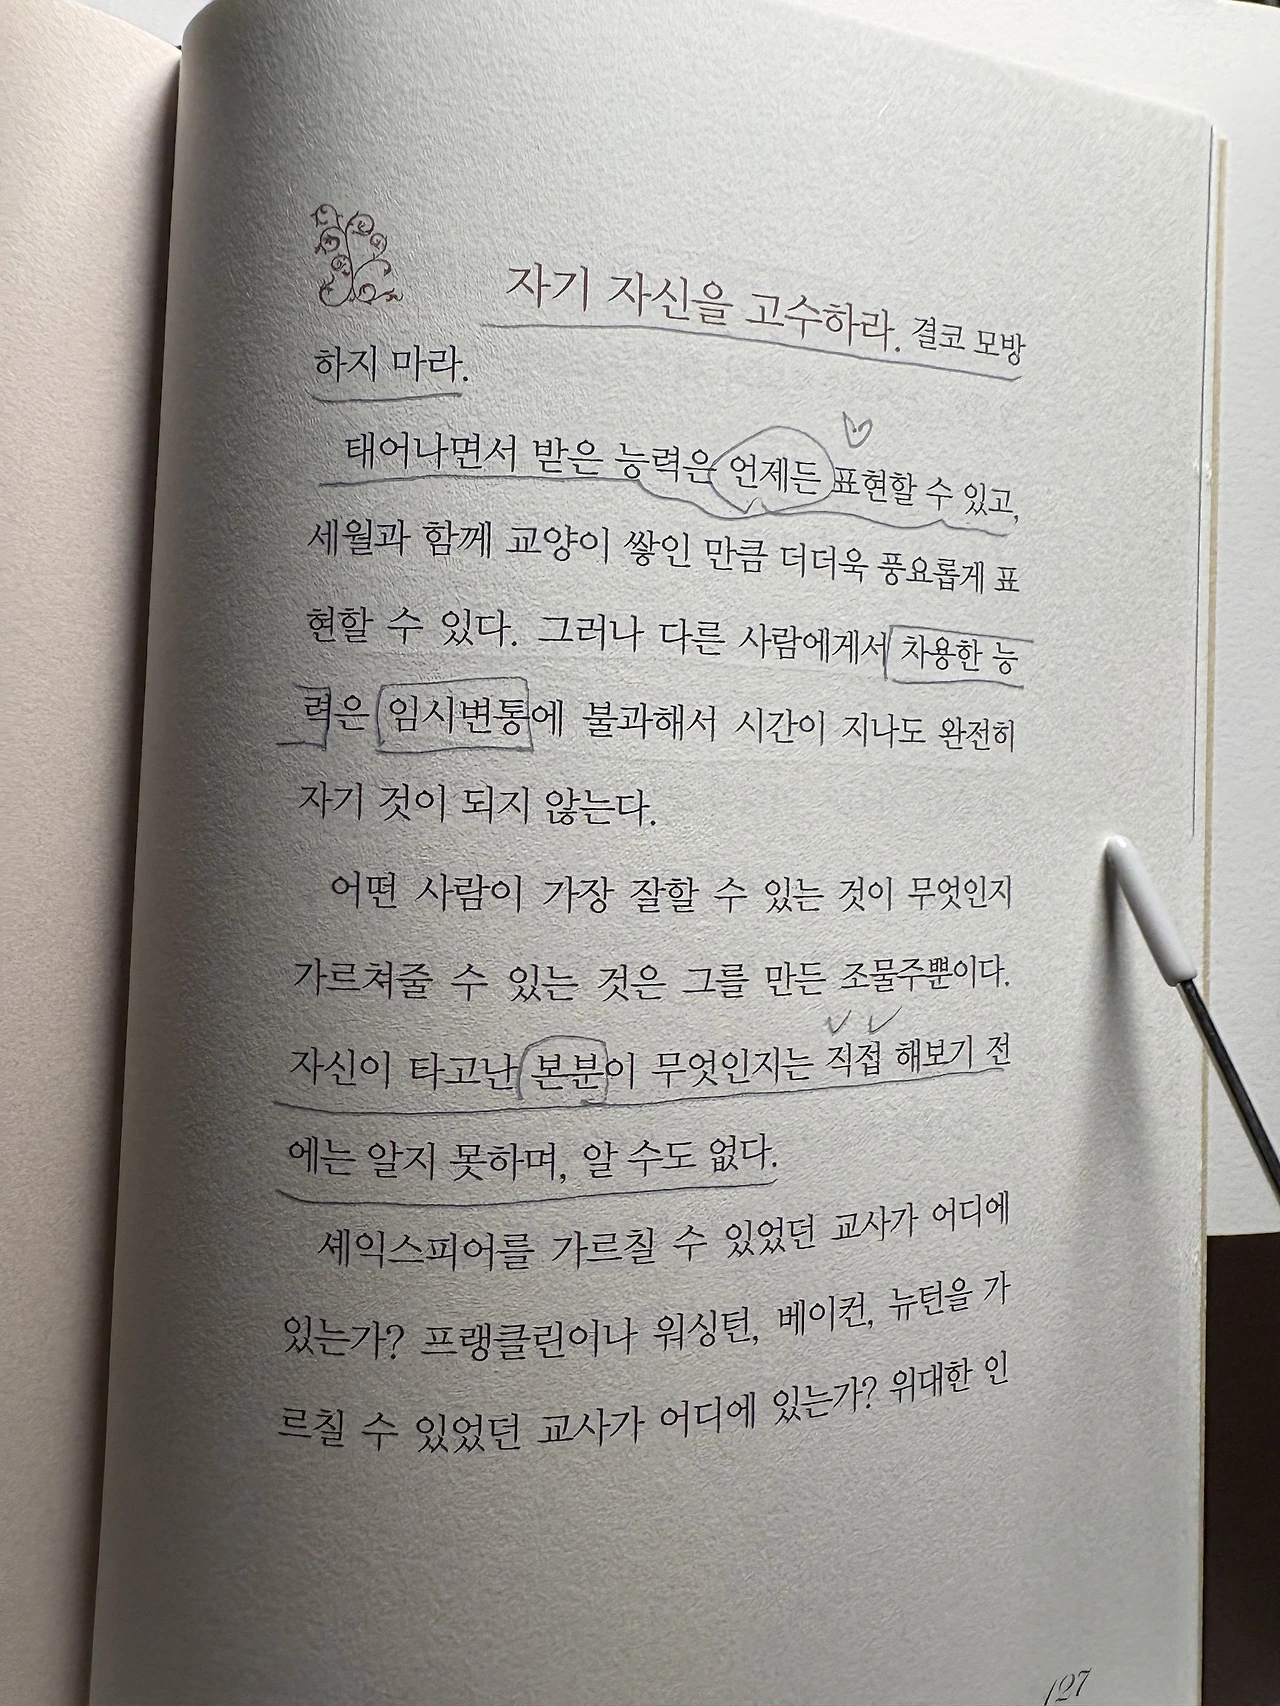 자기 자신을 고수하라. 결코 모방
하지 마라.
태어나면서 받은 능력은 언제든 표현할 수 있고,
세월과 함께 교양이 쌓인 만큼 더더욱 풍요롭게 표
현할 수 있다. 그러나 다른 사람에게서 차용한 능
력은 임시변통에 불과해서 시간이 지나도 완전히
자기 것이 되지 않는다.
어떤 사람이 가장 잘할 수 있는 것이 무엇인지
가르쳐줄 수 있는 것은 그를 만든 조물주뿐이다.
자신이 타고난 본분이 무엇인지는 직접 해보기 전
에는 알지 못하며, 알 수도 없다.
셰익스피어를 가르칠 수 있었던 교사가 어디에
있는가? 프랭클린이나 워싱턴, 베이컨, 뉴턴을 가
르칠 수 있었던 교사가 어디에 있는가? 위대한 인
127